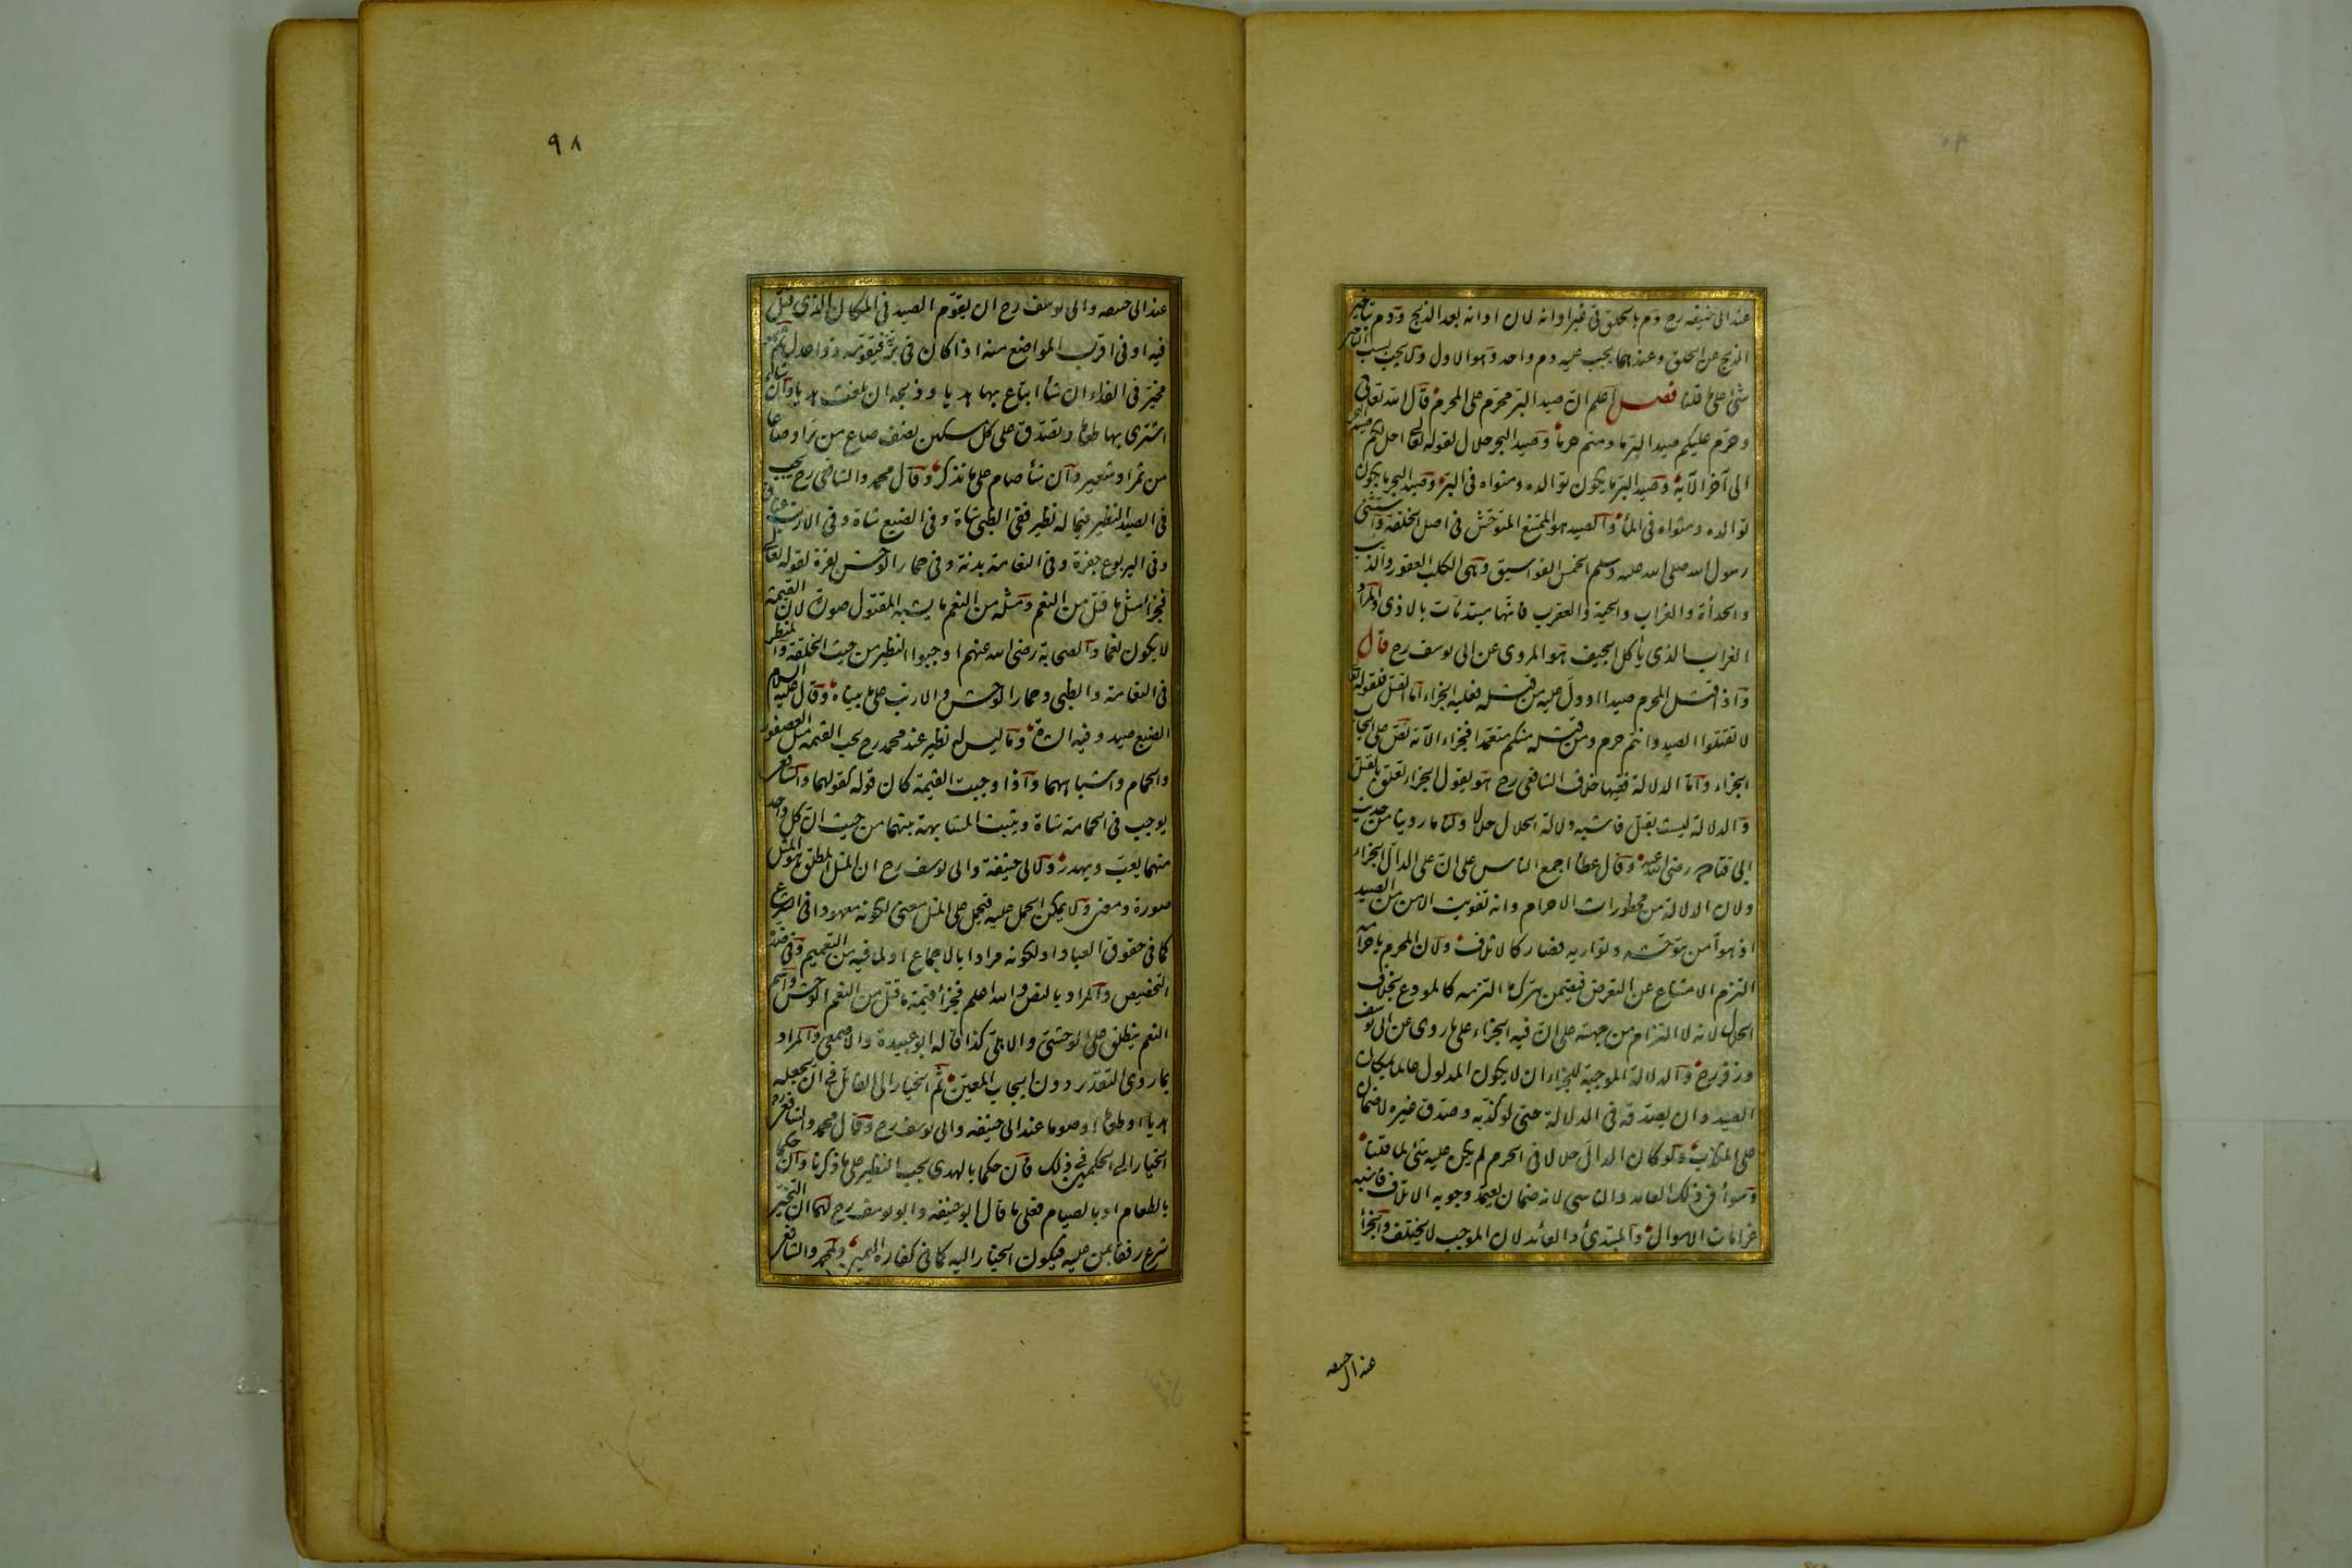 عند ابى حنيفه رح دم بالحلق فى غير اوانه لان اوانه بعد الذبح ودم بتاخير
الذبح عن الحلق وعندهما يجب عليه دم واحد وهو الاول ولا يجب بسبب التاخير
شئ على ما قلنا فصل اعلم ان صيد البر محرم على المحرم قال الله تعالى
وحرم عليكم صيد البر ما دمتم حرما وصيد البحر حلال لقوله تعالى احل لكم صيد البحر
الى آخر الآية وصيد البر ما يكون توالده ومثواه فى البر وصيد البحر ما يكون
توالده ومثواه فى الماء والصيد هو الممتنع المتوحش فى اصل الخلقة واستثنى
رسول الله صلى الله عليه وسلم الخمس الفواسيق وهى الكلب العقور والذيب
والحدأة والغراب والحية والعقرب فانها مبتدئات بالاذى والمراد
الغراب الذى ياكل الجيف هو المروى عن ابى يوسف رح قال
واذا قتل المحرم صيدا او دل عليه من قتله فعليه الجزاء اما القتل فلقوله تعالى
لا تقتلوا الصيد وانتم حرم ومن قتله منكم متعمدا فجزاء الآية نص على ايجاب
الجزاء واما الدلالة ففيها خلاف الشافعى رح هو يقول الجزاء تعلق بالقتل
والدلالة ليست بقتل فاشبه دلالة الحلال حلالا ولنا ما روينا من حديث
ابى قتادة رضى الله عنه وقال عطا اجمع الناس على ان على الدال الجزاء
ولان الدلالة من محظورات الاحرام وانه تفويت الامن من الصيد
اذ هو آمن بتوحشه وتواريه فصار كالاتلاف ولان المحرم باحرامه
التزم الامتناع عن التعرض فيضمن بترك ما التزمه كالمودع بخلاف
الحلال لانه لا التزام من جهته على ان فيه الجزاء على ما روى عن ابى يوسف
وزفر رح والدلالة الموجبة للجزاء ان لا يكون المدلول عالما بمكان
الصيد وان يصدقه فى الدلالة حتى لو كذبه وصدق غيره لا ضمان
على المكذب ولو كان الدال حلالا فى الحرم لم يكن عليه شئ لما قلنا
وسواء فى ذلك العامد والناسى لانه ضمان يعتمد وجوبه الاتلاف فاشبه
غرامات الاموال والمبتدئ والعائد لان الموجب لا يختلف والجزاء
عند ابى حنيفه
٩٨
عند ابى حنيفه وابى يوسف رح ان يقوم الصيد فى المكان الذى قتل
فيه او فى اقرب المواضع منه اذا كان فى بر فيقومه ذوا عدل ثم هو
مخير فى الفداء ان شاء ابتاع بها هديا وذبحه ان بلغت هديا وان شاء
اشترى بها طعاما وتصدق على كل مسكين نصف صاع من بر او صاعا
من تمر او شعير وان شاء صام على ما نذكر وقال محمد والشافعى رح يجب
فى الصيد النظير فيما له نظير ففى الظبى شاة وفى الضبع شاة وفى الارنب عناق
وفى اليربوع جفرة وفى النعامة بدنة وفى حمار الوحش بقرة لقوله تعالى
فجزاء مثل ما قتل من النعم ومثله من النعم ما يشبه المقتول صورة لان القيمة
لا يكون نعما والصحابة رضى الله عنهم اوجبوا النظير من حيث الخلقة والمنظر
فى النعامة والظبى وحمار الوحش والارنب على ما بيناه وقال عليه السلام
الضبع صيد وفيه الشاة وما ليس له نظير عند محمد رح يجب القيمة مثل العصفور
والحمام واشباههما واذا وجبت القيمة كان قوله كقولهما والشافعى
يوجب فى الحمامة شاة ويثبت المشابهة بينهما من حيث ان كل واحد
منهما يعب ويهدر ولابى حنيفة وابى يوسف رح ان المثل المطلق هو المثل
صورة ومعنى ولا يمكن الحمل عليه فيحمل على المثل معنى لكونه معهودا فى الشرع
كما فى حقوق العباد او لكونه مرادا بالاجماع او لما فيه من التعميم وفى ضده
التخصيص والمراد بالنص والله اعلم فجزاء قيمة ما قتل من النعم الوحش واسم
النعم ينطلق على الوحشى والاهلى كذا قاله ابو عبيدة والاصمعى والمراد
بما روى التقدير دون ايجاب المعين ثم الخيار الى القاتل فى ان يجعله
هديا او طعاما او صوما عند ابى حنيفه وابى يوسف رح وقال محمد والشافعى رح
الخيار الى الحكمين فى ذلك فان حكما بالهدى يجب النظير على ما ذكرنا وان حكما
بالطعام او بالصيام فعلى ما قال ابو حنيفه وابو يوسف رح لهما ان التخيير
شرع رفقا بمن عليه فيكون الخيار اليه كما فى كفارة اليمين ولمحمد والشافعى